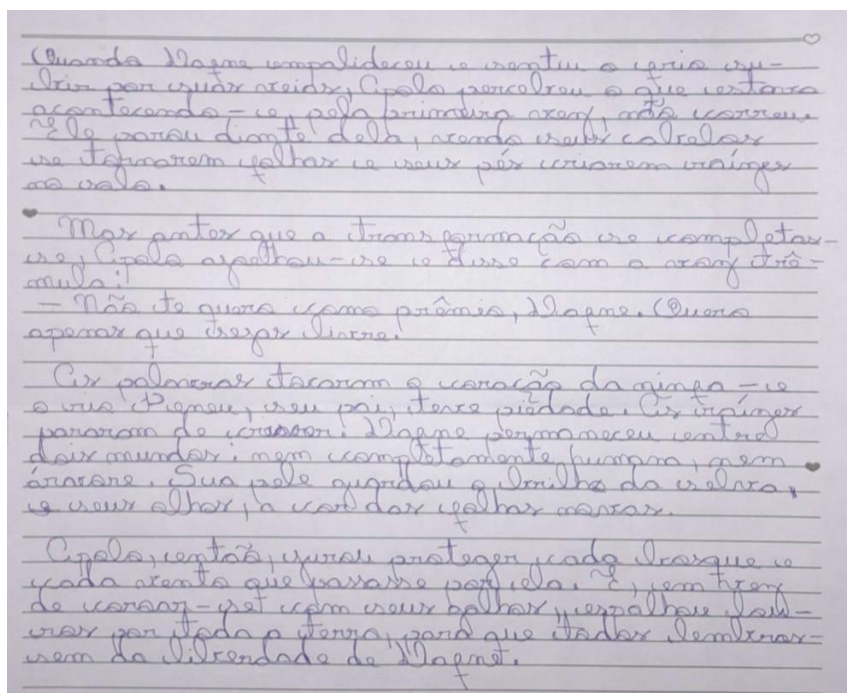 Quando Dafne empalideceu e sentiu a seiva su-
bir por suas veias, Apolo percebeu o que estava
acontecendo - e, pela primeira vez, não correu.
Ele parou diante dela, vendo seus cabelos
se tornarem folhas e seus pés criarem raízes
no solo.
Mas antes que a transformação se completas-
se, Apolo ajoelhou-se e disse com a voz trê-
mula:
- Não te quero como prêmio, Dafne. Quero
apenas que sejas livre.
As palavras tocaram o coração da ninfa - e
o rio Peneu, seu pai, teve piedade. As raízes
pararam de crescer. Dafne permaneceu entre
dois mundos: nem completamente humana, nem
árvore. Sua pele guardou o brilho da selva,
e seus olhos, a cor das folhas novas.
Apolo, então, jurou proteger cada bosque e
cada vento que passasse por ela. E, em vez
de coroar-se com seus folhas, espalhou lou-
ros por toda a terra, para que todos lembras-
sem da liberdade de Dafne.